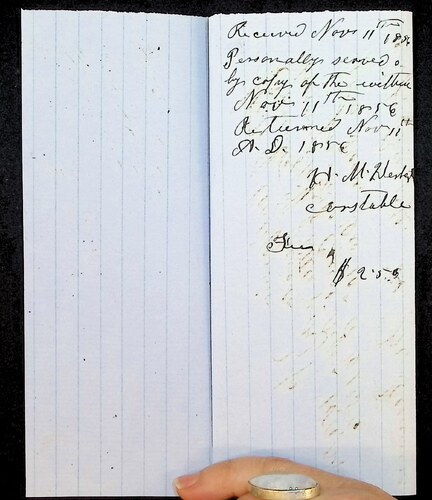 Received Novr 11th 185
Personally served
by copy of the within
Novr 11th 1856
Returned Nov 11th
A.D. 1856
H. M.
Constable
Fees "
$ 2.50